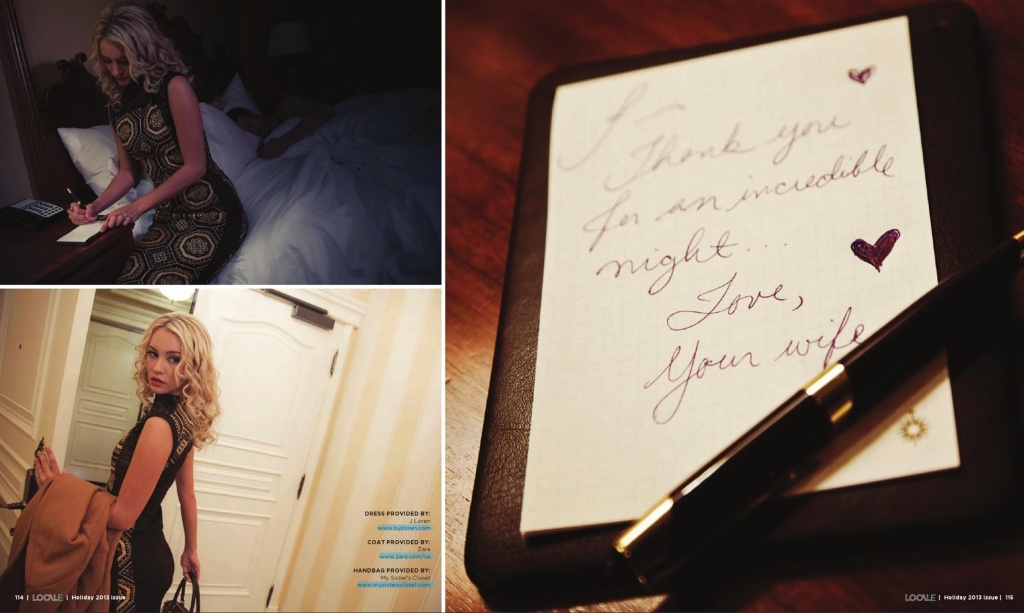 DRESS PROVIDED BY:
J Loren
www.byjloren.com
COAT PROVIDED BY:
Zara
www.zara.com/us
HANDBAG PROVIDED BY:
My Sister's Closet
www.mysisterscloset.com
114 | LOCALE | Holiday 2013 Issue
J-
Thank you
for an incredible
night...
Love,
Your wife
LOCALE | Holiday 2013 Issue | 115